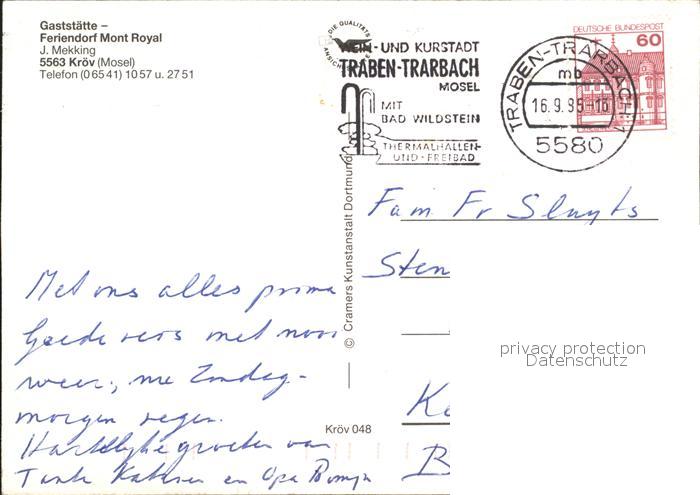 Gaststätte –
Feriendorf Mont Royal
J. Mekking
5563 Kröv (Mosel)
Telefon (0 65 41) 10 57 u. 27 51
DIE QUALITÄTS
WEIN- UND KURSTADT
TRABEN-TRARBACH
MOSEL
MIT
BAD WILDSTEIN
THERMALHALLEN-
UND-FREIBAD
TRABEN-TRARBACH 1
mb
16.9.86-16
5580
DEUTSCHE BUNDESPOST
60
© Cramers Kunstanstalt Dortmund
Fam Fr Sluyts
Sten
Ke
B
Met ons alles prima
Goede reis met mooi
weer, me Zondag-
morgen regen.
Hartelijke groeten van
Tante Katrien en Opa Bompa
Kröv 048
privacy protection
Datenschutz